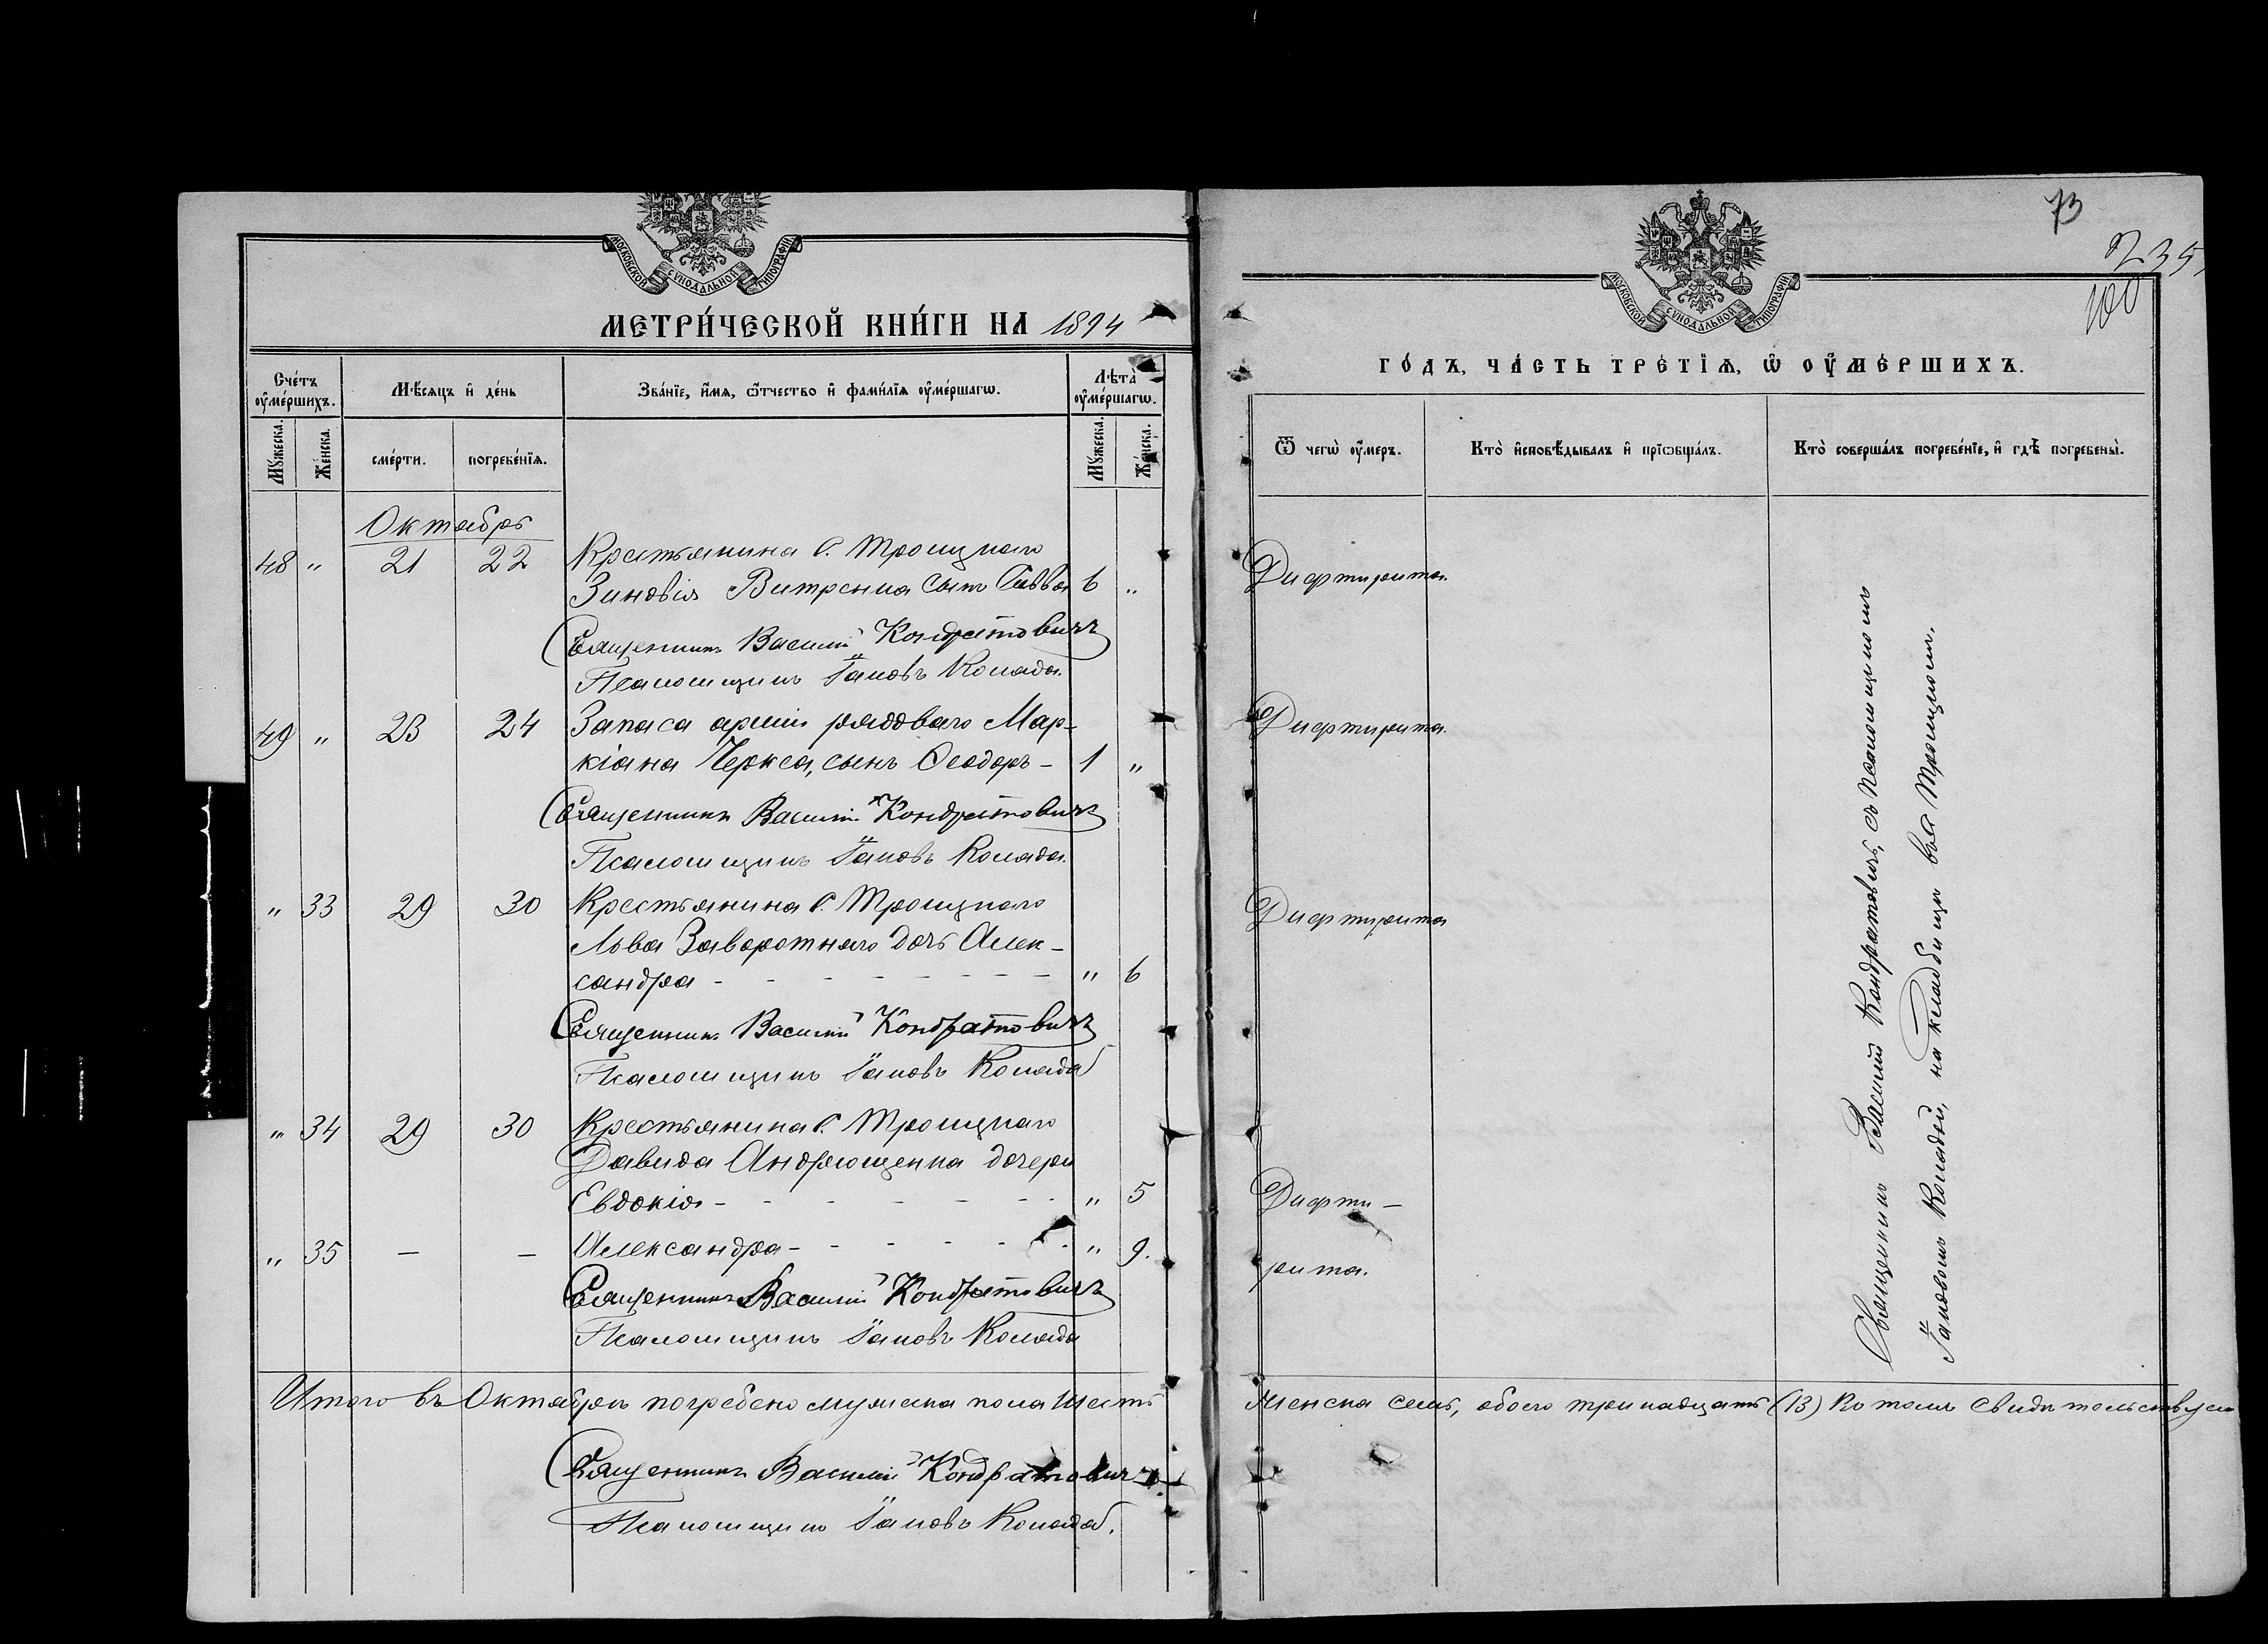 МОСКОВСКОЙ СУНОДАЛЬНОЙ ТИПОГРАФІИ
МЕТРИ́ЧЕСКОЙ КНИ́ГИ НА 1894
Сче́тъ оу҆ме́ршихъ.
Мѣ́сяцъ и҆ де́нь
Зва́нїе, и҆́мѧ, ѻ҆́тчество и҆ фами́лїѧ оу҆ме́ршагѡ.
Лѣта̀ оу҆ме́ршагѡ.
Мꙋ́жеска.
Же́нска.
сме́рти.
погребе́нїѧ.
Мꙋ́жеска.
Же́нска.
Октябрь
48 " 21 22 Крестьянина с. Троицкаго
Зиновія Витренка сынъ Савва 6 "
Священникъ Василій Кондратовичъ
Псаломщикъ Іаковъ Коляда.
49 " 23 24 Запаса арміи рядоваго Мар-
кіана Черкса, сынъ Ѳеодоръ - 1 "
Священникъ Василій Кондратовичъ
Псаломщикъ Іаковъ Коляда.
" 33 29 30 Крестьянина с. Троицкаго
Льва Заворотняго дочь Алек-
сандра - - - - - - - - " 6
Священникъ Василій Кондратовичъ
Псаломщикъ Іаковъ Коляда
" 34 29 30 Крестьянина с. Троицкаго
Давида Андрющенка дочери
Евдокія - - - - - - - " 5
" 35 — — Александра - - - - - - " 9.
Священникъ Василій Кондратовичъ
Псаломщикъ Іаковъ Коляда
Итого въ Октябрѣ погребено мужеска пола шесть
Священникъ Василій Кондратовичъ
Псаломщикъ Іаковъ Коляда.
73
235
100
МОСКОВСКОЙ СУНОДАЛЬНОЙ ТИПОГРАФІИ
ГО́ДЪ, ЧА́СТЬ ТРЕ́ТЇѦ, Ѡ҆ ОУ҆МЕ́РШИХЪ.
Ѿ чегѡ̀ оу҆́меръ.
Кто̀ и҆сповѣ́дывалъ и҆ прїѡбща́лъ.
Кто̀ соверша́лъ погребе́нїе, и҆ гдѣ̀ погребены̀.
Дифтирита.
Дифтирита.
Дифтирита
Дифти —
рита.
Священникъ Василій Кондратовичъ, съ псаломщикомъ
Іаковомъ Колядой, на кладбищѣ въ с. Троицкомъ.
Женска семь, обоего тринадцать (13) Въ томъ свидѣтельствуемъ